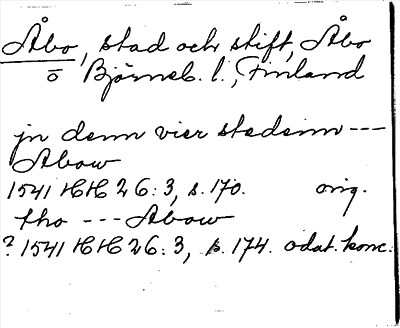 Åbo, stad och stift, Åbo
o Björneb. l., Finland
jn denn vier stedenn ---
Abow
1541 HH 26:3, s. 170. orig.
tho --- Abow
? 1541 HH 26:3, s. 174. odat. konc.